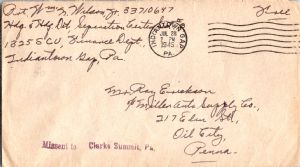 Pvt Wm N. Wilson Jr. 33710647
Hdq & Hdq Det Separation Center
1325 SCU, Finance Dept.
Indiantown Gap, Pa.
Free
INDIANTOWN GAP
JUL 28
PM
1945
PA.
Mr. Ray Erickson
% Miller Auto Supply Co.,
217 Elm St.,
Oil City,
Penna.
Missent to Clarks Summit, Pa.